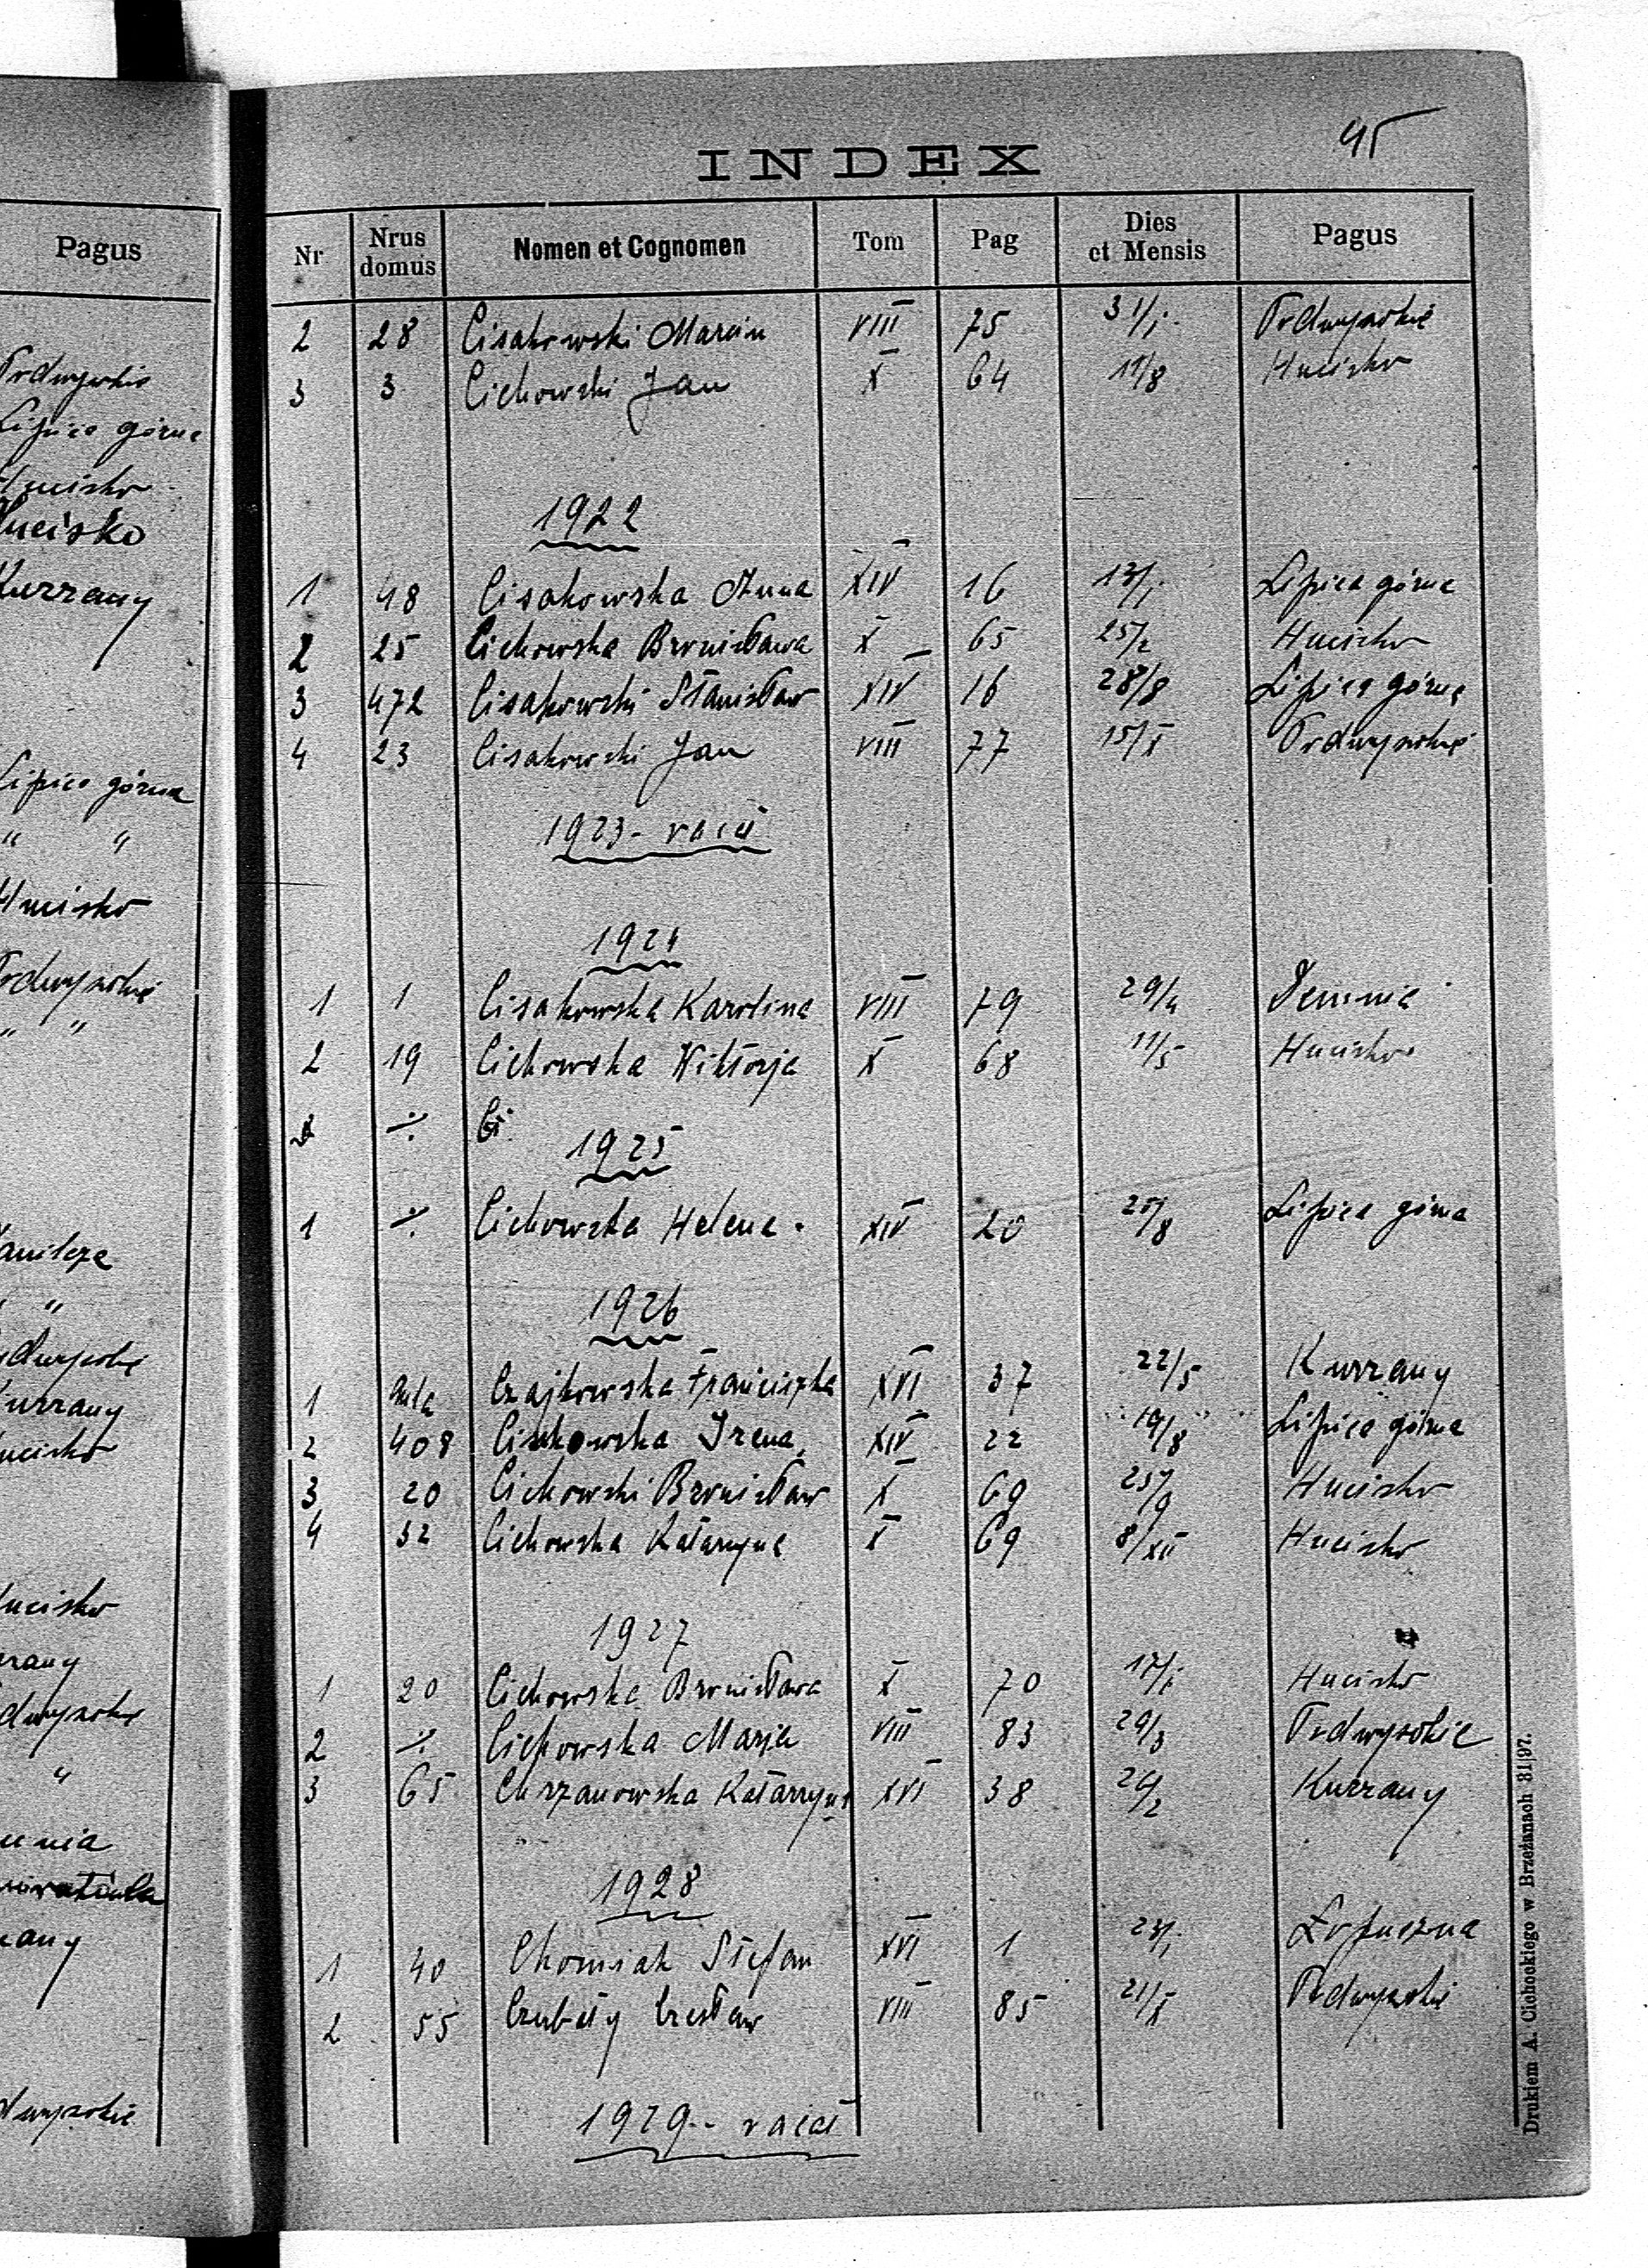 Pagus
Podwysokie
Lipica górna
Hucisko
Hucisko
Kurzany
Lipica górna
" "
Hucisko
Podwysokie
" "
" "
Kurzany
Hucisko
45
INDEX
Nr Nrus domus Nomen et Cognomen Tom Pag Dies et Mensis Pagus
2 28 Cisakowski Marcin VIII 75 31/1 Podwysokie
3 3 Cichowski Jan X 64 Hucisko
1922
1 48 Cisakowska Anna XIV 16 13/1 Lipica górna
2 25 Cichowska Bronisława X 65 25/2 Hucisko
3 472 Cisakowski Stanisław XIV 16 28/8 Lipica górna
4 23 Cisakowski Jan VIII 77 15/X Podwysokie
1923 - vacat
1924
1 1 Cisakowska Karolina VIII 79 29/4 Demnia
2 19 Cichowska Wiktorja X 68 11/5 Hucisko
·/· Ci
1925
1 ·/· Cichowska Helena XIV 20 Lipica górna
1926
1 Czajkowska Franciszka XVI 37 22/5 Kurzany
2 408 Cisakowska Irena XIV 22 19/8 Lipica górna
3 20 Cichowski Bronisław X 69 25/9 Hucisko
4 32 Cichowska Katarzyna X 69 8/XII Hucisko
1927
1 20 Cichowska Bronisława X 70 17/1 Hucisko
2 ·/· Cichowska Marja VIII 83 29/3 Podwysokie
3 65 Chrzanowska Katarzyna XVI 38 Kurzany
1928
1 40 Chomiak Stefan XVI 1 23/1 Łopuszna
2 55 Czubaty Czesław VIII 85 21/X Podwysokie
1929 - vacat
Drukiem A. Cichockiego w Brzeżanach 81|97.